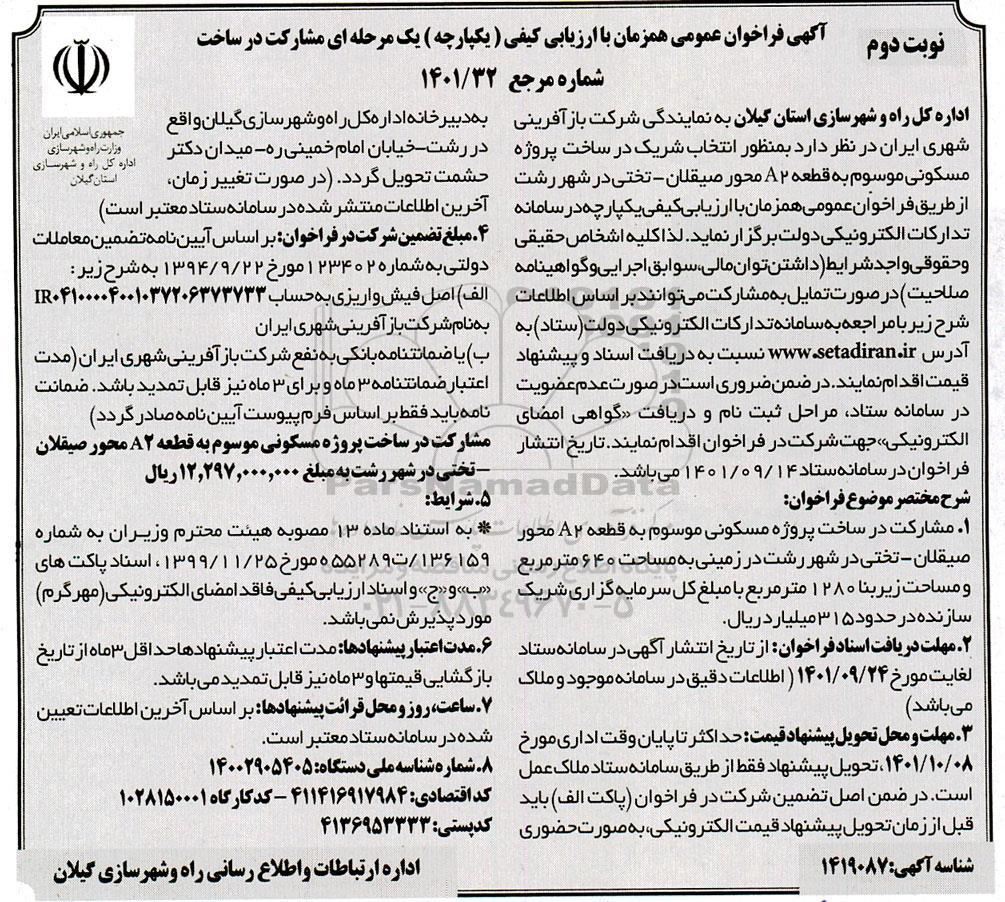 نوبت دوم
آگهی فراخوان عمومی همزمان با ارزیابی کیفی ( یکپارچه ) یک مرحله ای مشارکت در ساخت
شماره مرجع ۱۴۰۱/۳۲
جمهوری اسلامی ایران
وزارت راه و شهرسازی
اداره کل راه و شهرسازی
استان گیلان
اداره کل راه و شهرسازی استان گیلان به نمایندگی شرکت بازآفرینی
شهری ایران در نظر دارد بمنظور انتخاب شریک در ساخت پروژه
مسکونی موسوم به قطعه A۲ محور صیقلان - تختی در شهر رشت
از طریق فراخوان عمومی همزمان با ارزیابی کیفی یکپارچه در سامانه
تدارکات الکترونیکی دولت برگزار نماید. لذا کلیه اشخاص حقیقی
و حقوقی واجد شرایط (داشتن توان مالی، سوابق اجرایی و گواهینامه
صلاحیت) در صورت تمایل به مشارکت می‌توانند بر اساس اطلاعات
شرح زیر با مراجعه به سامانه تدارکات الکترونیکی دولت (ستاد) به
آدرس www.setadiran.ir نسبت به دریافت اسناد و پیشنهاد
قیمت اقدام نمایند. در ضمن ضروری است در صورت عدم عضویت
در سامانه ستاد، مراحل ثبت نام و دریافت «گواهی امضای
الکترونیکی» جهت شرکت در فراخوان اقدام نمایند. تاریخ انتشار
فراخوان در سامانه ستاد ۱۴۰۱/۰۹/۱۴ می باشد.
شرح مختصر موضوع فراخوان:
۱. مشارکت در ساخت پروژه مسکونی موسوم به قطعه A۲ محور
صیقلان - تختی در شهر رشت در زمینی به مساحت ۶۴۰ مترمربع
و مساحت زیربنا ۱۲۸۰ مترمربع با مبلغ کل سرمایه گزاری شریک
سازنده در حدود ۳۱۵ میلیارد ریال.
۲. مهلت دریافت اسناد فراخوان: از تاریخ انتشار آگهی در سامانه ستاد
لغایت مورخ ۱۴۰۱/۰۹/۲۴ ( اطلاعات دقیق در سامانه موجود و ملاک
می باشد)
۳. مهلت و محل تحویل پیشنهاد قیمت: حداکثر تا پایان وقت اداری مورخ
۱۴۰۱/۱۰/۰۸، تحویل پیشنهاد فقط از طریق سامانه ستاد ملاک عمل
است. در ضمن اصل تضمین شرکت در فراخوان (پاکت الف) باید
قبل از زمان تحویل پیشنهاد قیمت الکترونیکی، به صورت حضوری
به دبیرخانه اداره کل راه و شهرسازی گیلان واقع
در رشت-خیابان امام خمینی ره- میدان دکتر
حشمت تحویل گردد. (در صورت تغییر زمان،
آخرین اطلاعات منتشر شده در سامانه ستاد معتبر است)
۴. مبلغ تضمین شرکت در فراخوان: بر اساس آیین نامه تضمین معاملات
دولتی به شماره ۱۲۳۴۰۲ مورخ ۱۳۹۴/۹/۲۲ به شرح زیر :
الف) اصل فیش واریزی به حساب IR۰۴۱۰۰۰۰۴۰۰۱۰۳۷۲۰۶۳۷۳۷۳۳
به نام شرکت بازآفرینی شهری ایران
ب) یا ضمانتنامه بانکی به نفع شرکت بازآفرینی شهری ایران (مدت
اعتبار ضمانتنامه ۳ ماه و برای ۳ ماه نیز قابل تمدید باشد. ضمانت
نامه باید فقط بر اساس فرم پیوست آیین نامه صادر گردد)
مشارکت در ساخت پروژه مسکونی موسوم به قطعه A۲ محور صیقلان
- تختی در شهر رشت به مبلغ ۱۲,۲۹۷,۰۰۰,۰۰۰ ریال
۵. شرایط:
* به استناد ماده ۱۳ مصوبه هیئت محترم وزیران به شماره
۱۳۶۱۵۹/ت۵۵۲۸۹ه مورخ ۱۳۹۹/۱۱/۲۵، اسناد پاکت های
«ب» و «ج» و اسناد ارزیابی کیفی فاقد امضای الکترونیکی (مهر گرم)
مورد پذیرش نمی باشد.
۶. مدت اعتبار پیشنهادها: مدت اعتبار پیشنهادها حداقل ۳ ماه از تاریخ
بازگشایی قیمتها و ۳ ماه نیز قابل تمدید می باشد.
۷. ساعت، روز و محل قرائت پیشنهادها: بر اساس آخرین اطلاعات تعیین
شده در سامانه ستاد معتبر است.
۸. شماره شناسه ملی دستگاه: ۱۴۰۰۲۹۰۵۴۰۵
کد اقتصادی: ۴۱۱۴۱۶۹۱۷۹۸۴ - کد کارگاه ۱۰۲۸۱۵۰۰۰۱
کدپستی: ۴۱۳۶۹۵۳۳۳۳
شناسه آگهی: ۱۴۱۹۰۸۷
اداره ارتباطات و اطلاع رسانی راه و شهرسازی گیلان
ParsNamadData
پایگاه اطلاع رسانی مناقصه و مزایده
۰۲۱-۸۸۳۴۹۶۷۰-۵